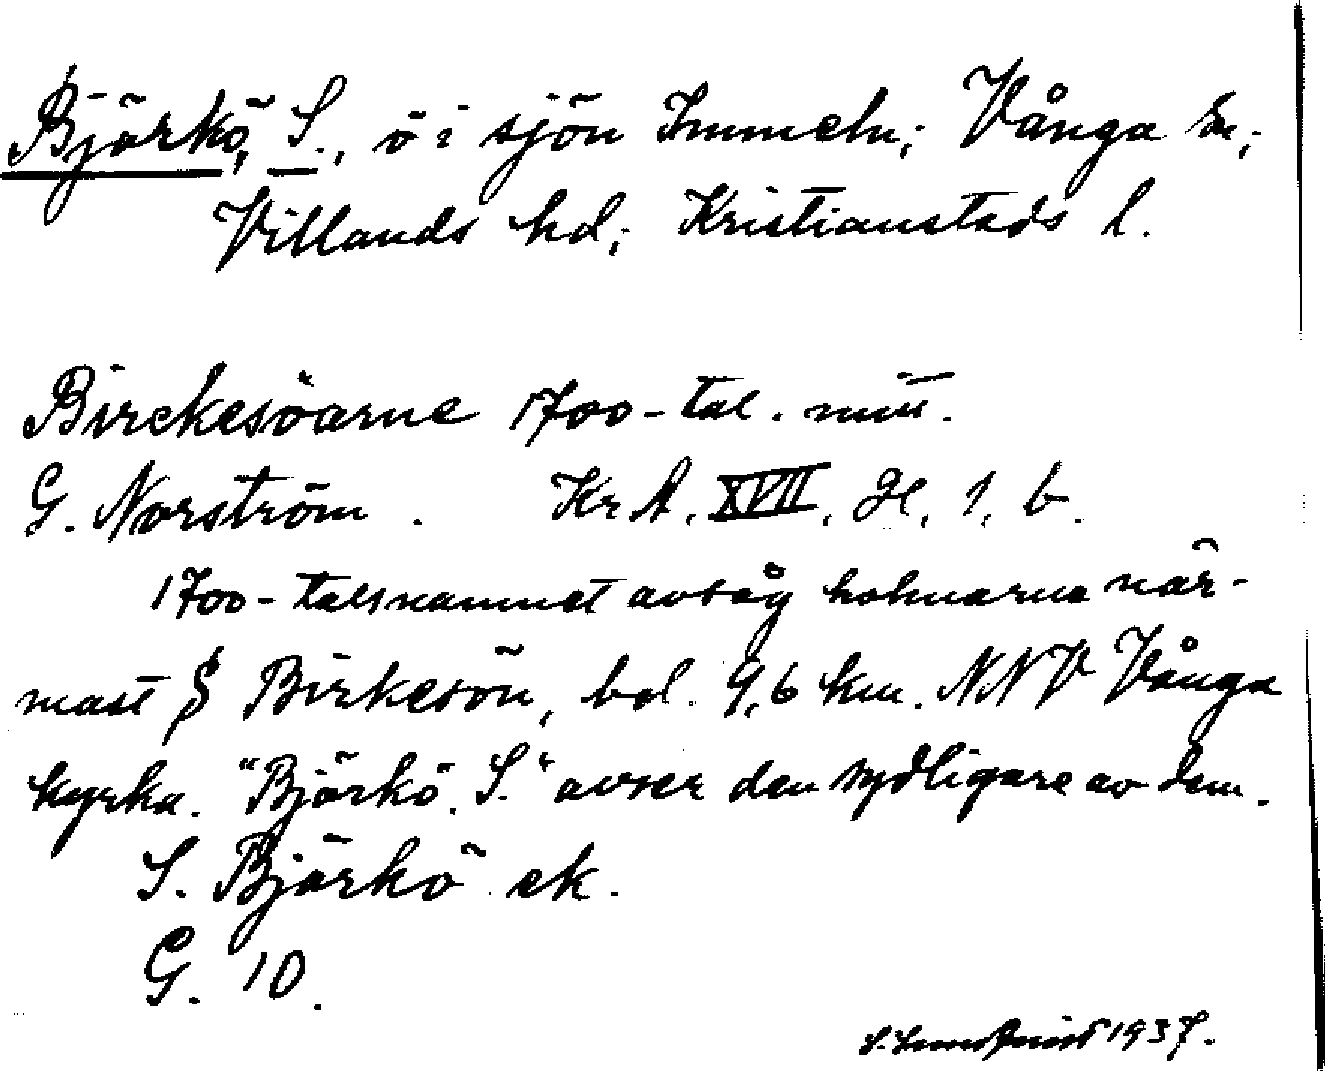 Björkö, S., ö i sjön Immeln; Vånga sn;
Villands hd; Kristianstads l.
Birckesöarne 1700-tal. mitt.
G. Norström. KrA. XVII, H, 1, b.
1700-talsnamnet avsåg holmarna när-
mast § Birkesön, bel. 9,6 km. NNV Vånga
kyrka. "Björkö. S." avser den sydligare av dem.
S. Björkö ek.
G. 10.
1937.